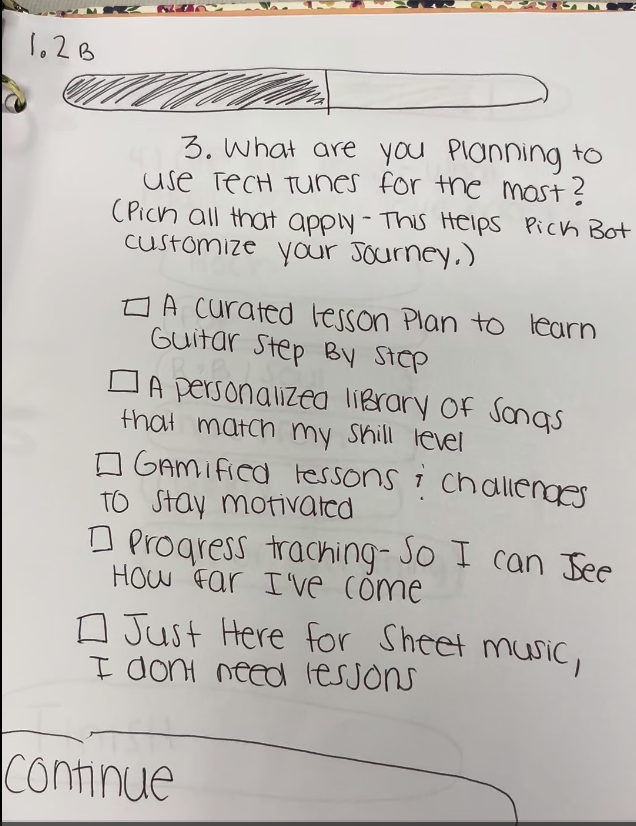 1.2B
3. What are you Planning to
use TECH TUNES for the most?
(Pick all that apply - This Helps Pick Bot
customize your Journey.)
A curated lesson Plan to learn
Guitar Step By Step
A personalized liBrary of Songs
that match my skill level
GAMified lessons & challenges
TO Stay motivated
Progress tracking - So I can See
HOW far I've come
Just Here for Sheet music,
I dont need lessons
Continue